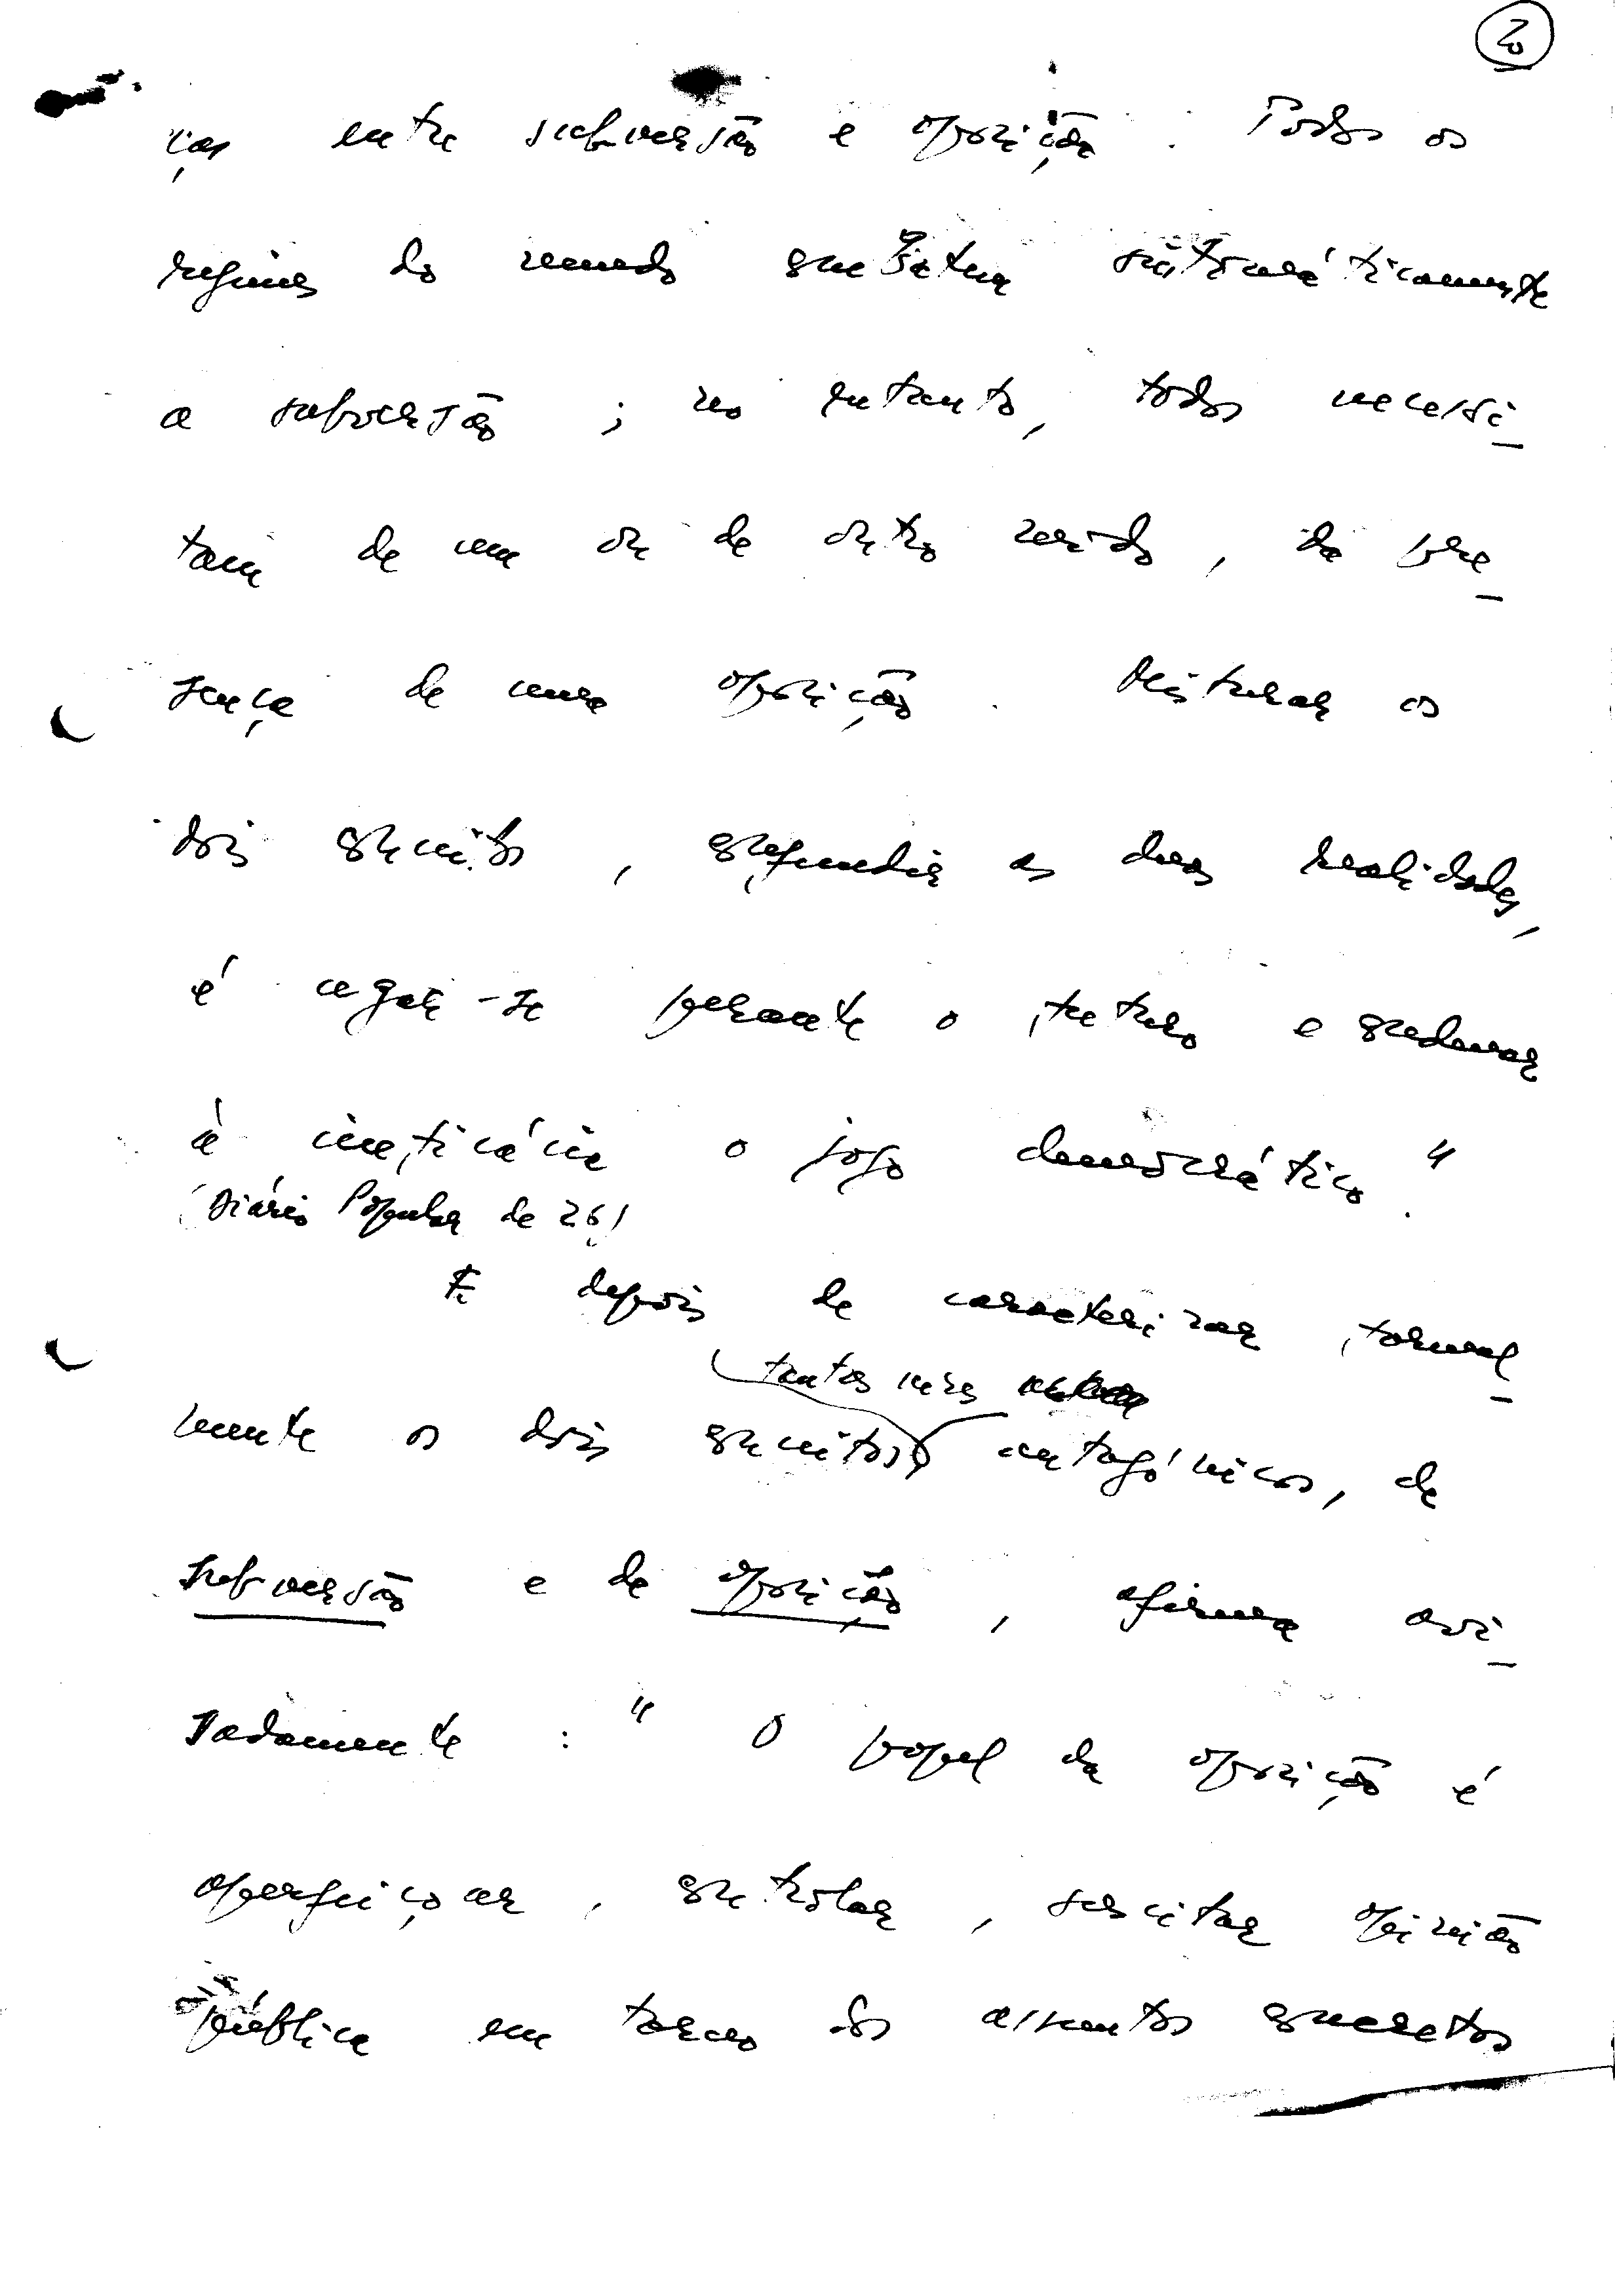 20
ças entre subversão e oposição. Todos os
regimes do mundo combatem sistemáticamente
a subversão; no entanto, todos necessi-
tam de um ou de outro modo, da pre-
sença de uma oposição. Misturar os
dois conceitos, confundir as duas realidades,
é cegar-se perante o futuro e condenar
à ineficácia o jogo democrático."
(Diário Popular de 26)
E depois de caracterizar formal-
tantas vezes
mente os dois conceitos, antagónicos, de
subversão e de oposição, afirma avi-
sadamente: "O papel da oposição é
aperfeiçoar, controlar, suscitar opinião
pública em torno dos assuntos concretos